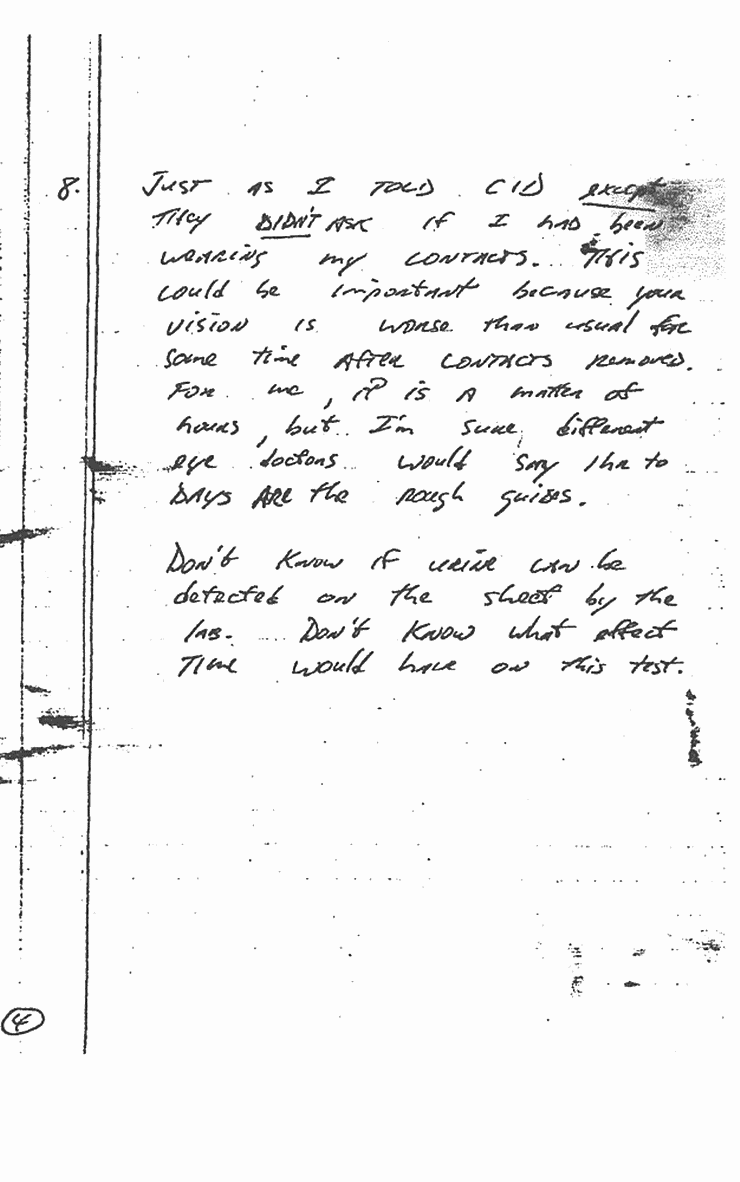 8. Just as I told CID except
they DIDN'T ASK if I had been
wearing my contacts. This
could be important because your
vision is worse than usual for
some time AFTER contacts removed.
For me, it is a matter of
hours, but I'm sure different
eye doctors would say 1 hr to
DAYS ARE the rough guides.
Don't know if urine can be
detected on the sheet by the
lab. Don't know what effect
Time would have on this test.
4